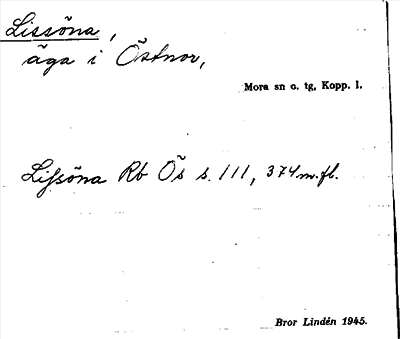 Lissöna,
äga i Östnor,
Mora sn o. tg, Kopp. l.
Lissöna Rb Ös s. 111, 374 m.fl.
Bror Lindén 1945.